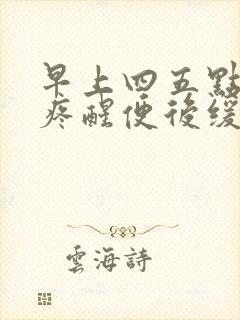 早上四五點
疼醒便後緩
雲海詩